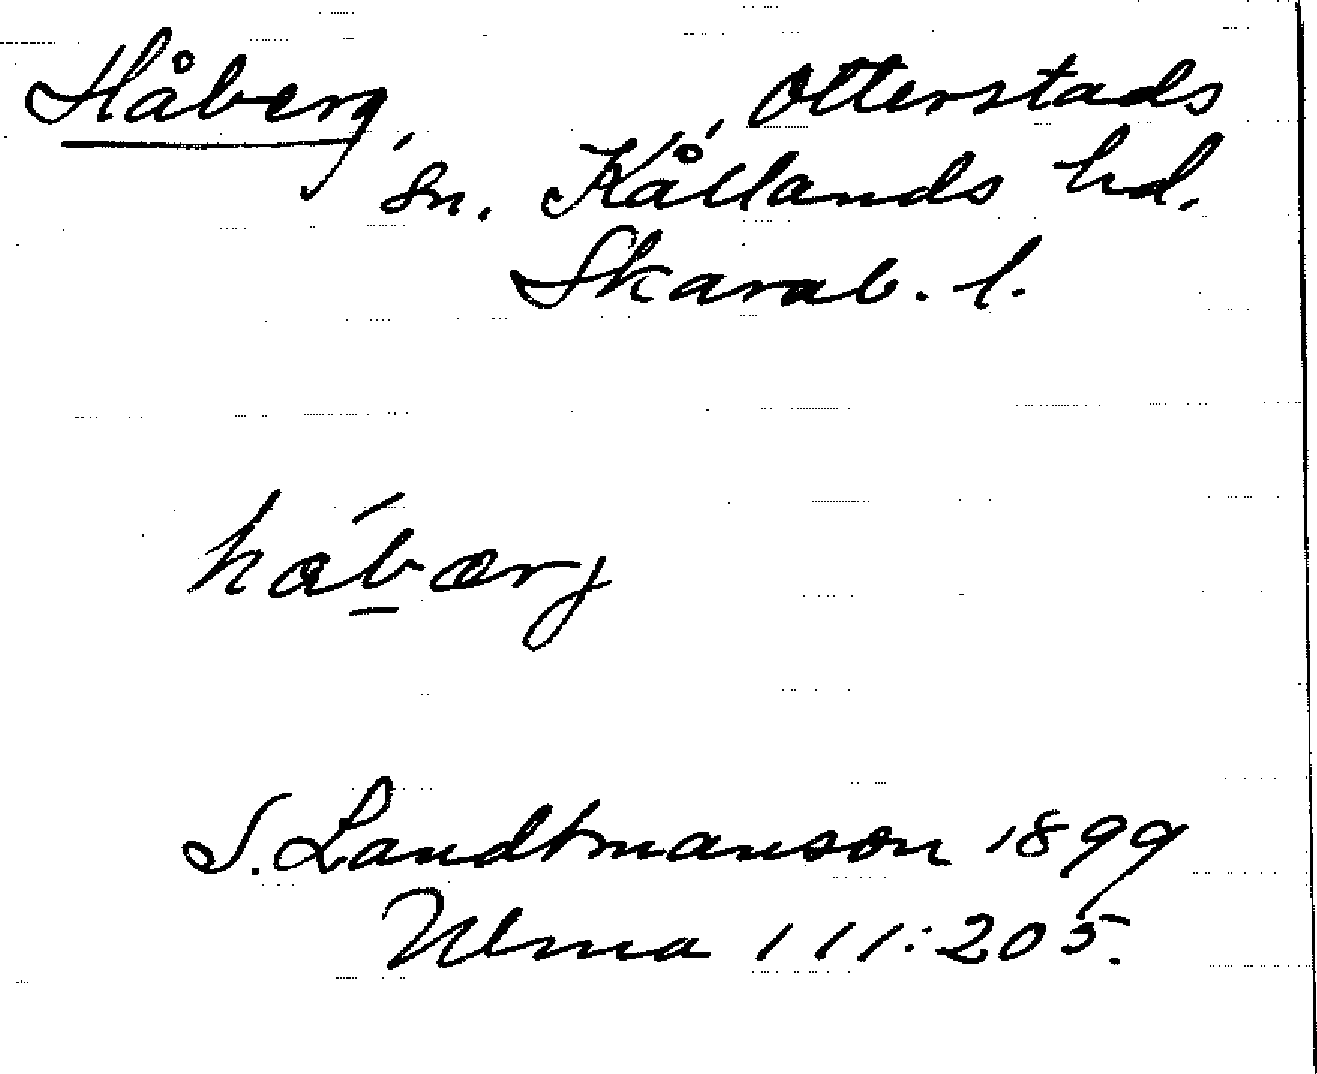 Håberg, Otterstads
sn. Kållands hd.
Skarab. l.
habærj
S. Landtmanson 1899
Ulma 111:205.